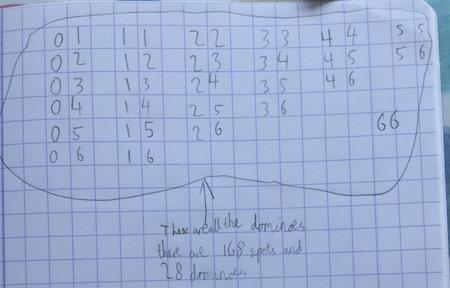 01 11 22 33 44 55
02 12 23 34 45 56
03 13 24 35 46
04 14 25 36
05 15 26 66
06 16
These are all the dominoes
there are 168 spots and
28 dominoes